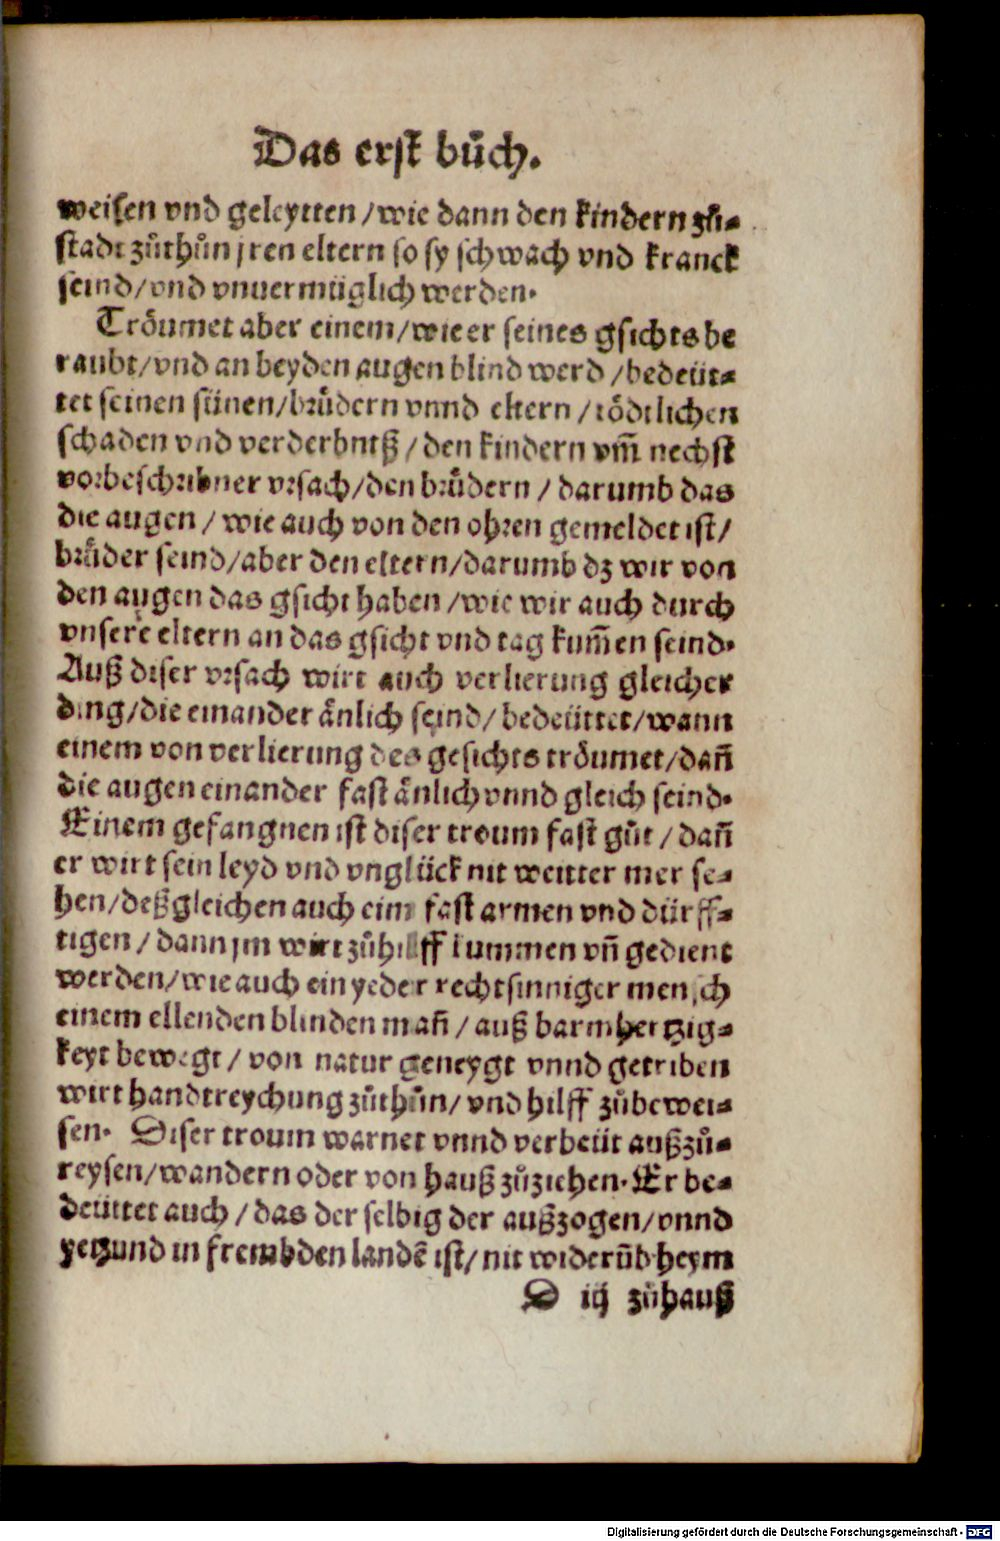 Das erst bůch.
weisen vnd geleytten / wie dann den kindern zů⸗
stadt zůthůn jren eltern so sy schwach vnd kranck
seind / vnd vnuermüglich werden.
Trôumet aber einem / wie er seines gsichts be
raubt / vnd an beyden augen blind werd / bedeüt⸗
tet seinen sünen / brůdern vnnd eltern / tödtlichen
schaden vnd verderbntß / den kindern vm̃ nechst
vorbeschribner vrsach / den brůdern / darumb das
die augen / wie auch von den ohren gemeldet ist /
brůder seind / aber den eltern / darumb dz wir von
den augen das gsicht haben / wie wir auch durch
vnsere eltern an das gsicht vnd tag kum̃en seind.
Auß diser vrsach wirt auch verlierung gleicher
ding / die einander änlich seind / bedeüttet / wann
einem von verlierung des gesichts trôumet / dañ
die augen einander fast änlich vnnd gleich seind.
Einem gefangnen ist diser troum fast gůt / dañ
er wirt sein leyd vnd vnglück nit weitter mer se⸗
hen / deßgleichen auch eim fast armen vnd dürff⸗
tigen / dann jm wirt zůhilff kummen vñ gedient
werden / wie auch ein yeder rechtsinniger mensch
einem ellenden blinden mañ / auß barmhertzig⸗
keyt bewegt / von natur geneygt vnnd getriben
wirt handtreychung zůthůn / vnd hilff zůbewei⸗
sen. Diser troum warnet vnnd verbeüt außzů⸗
reysen / wandern oder von hauß zůziehen. Er be⸗
deüttet auch / das der selbig der außzogen / vnnd
yetzund in frembden landẽ ist / nit widerũb heym
D iij zůhauß
Digitalisierung gefördert durch die Deutsche Forschungsgemeinschaft - DFG